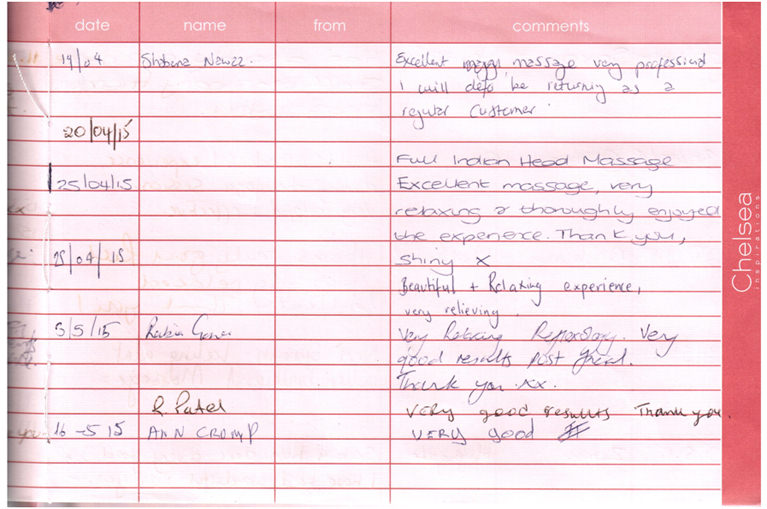 date name from comments
19/04 Shabana Excellent massage very professional
I will defo be returning as a
regular customer.
20/04/15
Full Indian Head Massage
25/04/15 Excellent massage, very
relaxing & thoroughly enjoyed
the experience. Thank you,
25/04/15 Shiny x
Beautiful + Relaxing experience,
very relieving.
3/5/15 Very Relaxing Very
good results post
Thank you. xx.
R. Patel VERY good results Thank you.
16-5 15 ANN CROMP VERY good
Chelsea
inspirations